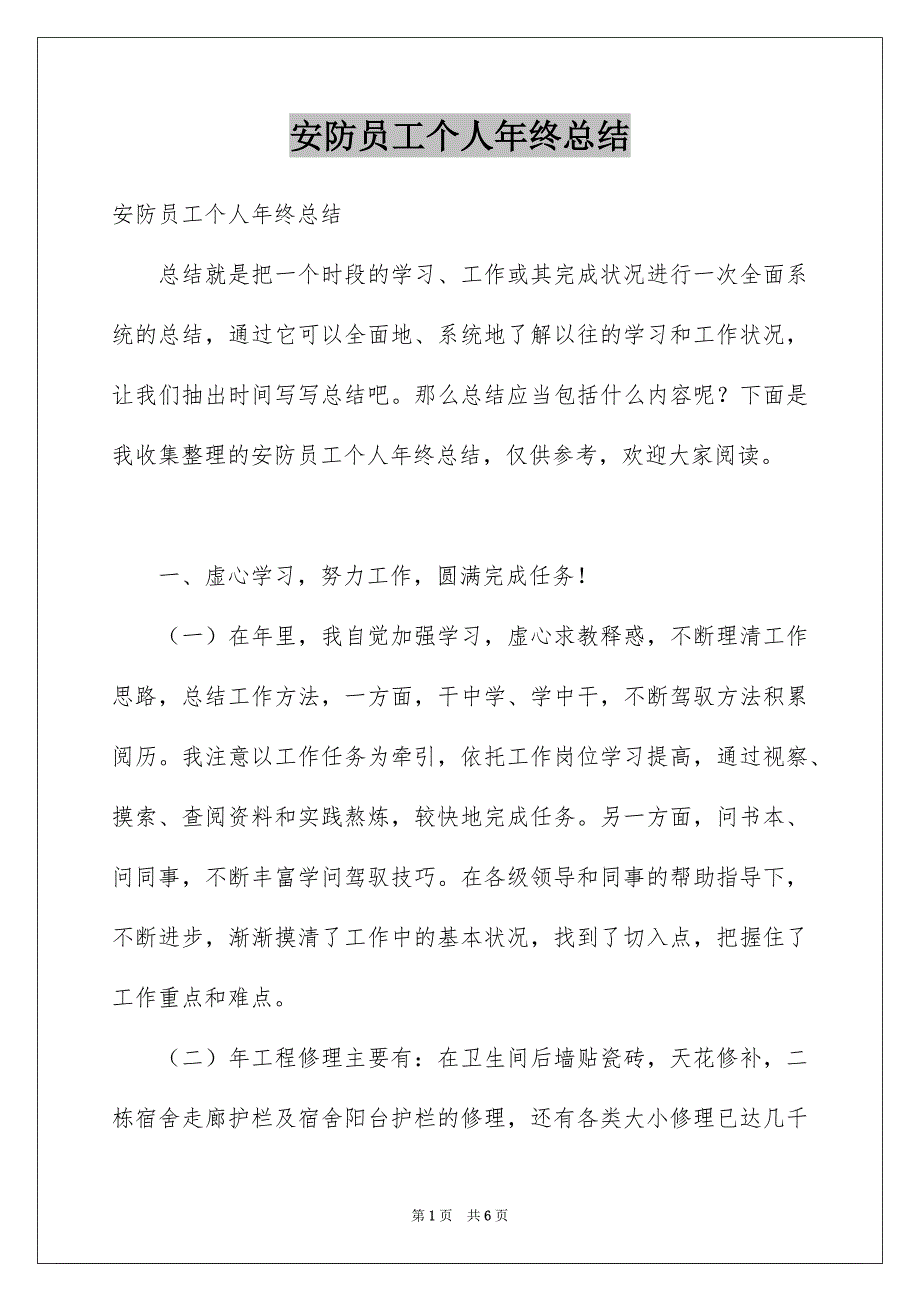 安防员工个人年终总结
安防员工个人年终总结
总结就是把一个时段的学习、工作或其完成状况进行一次全面系
统的总结，通过它可以全面地、系统地了解以往的学习和工作状况，
让我们抽出时间写写总结吧。那么总结应当包括什么内容呢？下面是
我收集整理的安防员工个人年终总结，仅供参考，欢迎大家阅读。
一、虚心学习，努力工作，圆满完成任务！
（一）在年里，我自觉加强学习，虚心求教释惑，不断理清工作
思路，总结工作方法，一方面，干中学、学中干，不断驾驭方法积累
阅历。我注意以工作任务为牵引，依托工作岗位学习提高，通过视察、
摸索、查阅资料和实践熬炼，较快地完成任务。另一方面，问书本、
问同事，不断丰富学问驾驭技巧。在各级领导和同事的帮助指导下，
不断进步，渐渐摸清了工作中的基本状况，找到了切入点，把握住了
工作重点和难点。
（二）年工程修理主要有：在卫生间后墙贴瓷砖，天花修补，二
栋宿舍走廊护栏及宿舍阳台护栏的修理，还有各类大小修理已达几千
第1页 共6页